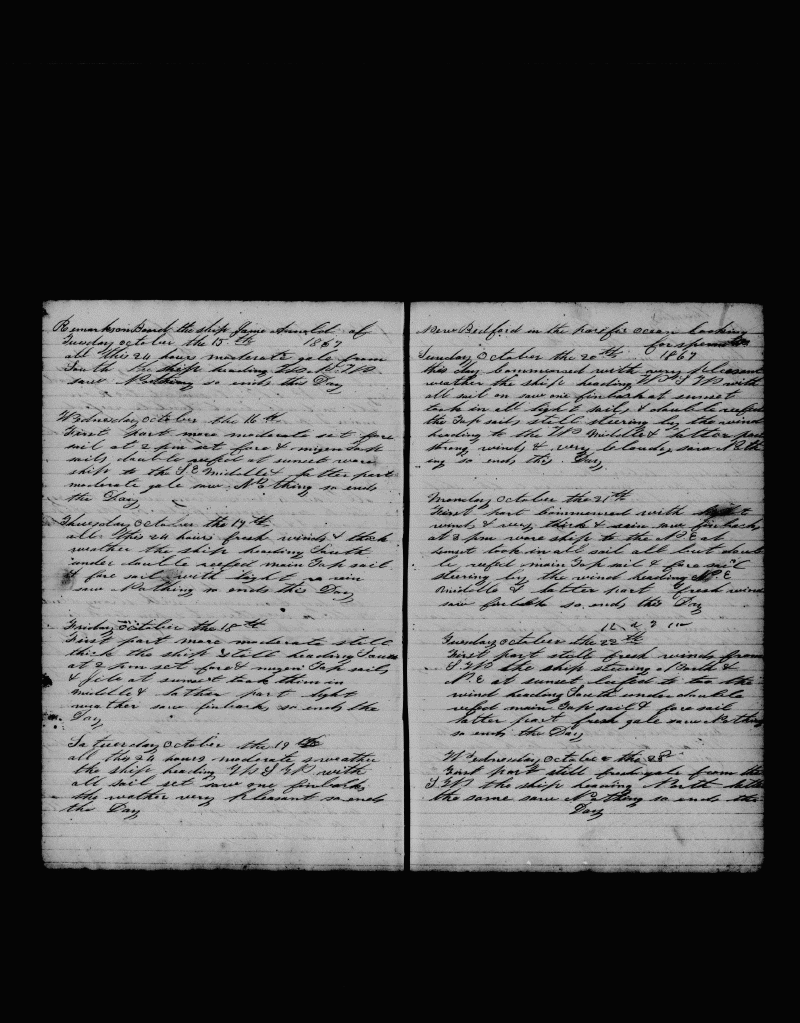 Remarks on Board the ship James Arnold of
Tuesday October the 15th 1867
all this 24 hours moderate gale from
South the ship heading W
saw Nothing so ends this Day
Wednesday October the 16th
First part more moderate set fore
sail at 2 pm set fore & mizen Top
sails double reefed at sunset wore
ship to the S.E. middle & latter part
moderate gale saw Nothing so ends
the Day
Thursday October the 17th
all this 24 hours fresh winds & thick
weather the ship heading South
under double reefed main Top sail
& fore sail with light rain
saw Nothing so ends this Day
Friday October the 18th
First part more moderate still
thick the ship still heading South
at 2 pm set fore & mizen Top sails
& jib at sunset took them in
middle & lather part light
weather saw finbacks so ends the
Day
Saturday October the 19th
all this 24 hours moderate weather
the ship heading W S W with
all sail set saw one finback
the wather very pleasant so ends
the Day
New Bedford in the pacific Ocean looking
for sperm
Sunday October the 20th 1867
this day Commenced with very pleasant
weather the ship heading W S W with
all sail on saw one finback at sunset
took in all light sails & double reefed
the Top sails still steering by the wind
heading to the W middle & latter part
strong winds & very cloudy saw Noth
ing so ends this Day
Monday October the 21th
First part Commenced with
winds & very thick & rain saw finbacks
at 3 pm wore ship to the N.E. at
sunset took in all sail all but doub
le refed main Top sail & fore sail
steering by the wind heading N.E
middle & latter part fresh wind
saw finback so ends this Day
Tuesday October the 22th
First part still fresh winds from
S.W the ship steering North &
N.E at sunset to the
wind heading South under double
refed main Top sail & fore sail
latter part fresh gale saw Nothing
so ends the Day
Wednesday October the 23
First part still fresh gale from the
S.W the ship heading North
the same saw Nothing so ends the
Day